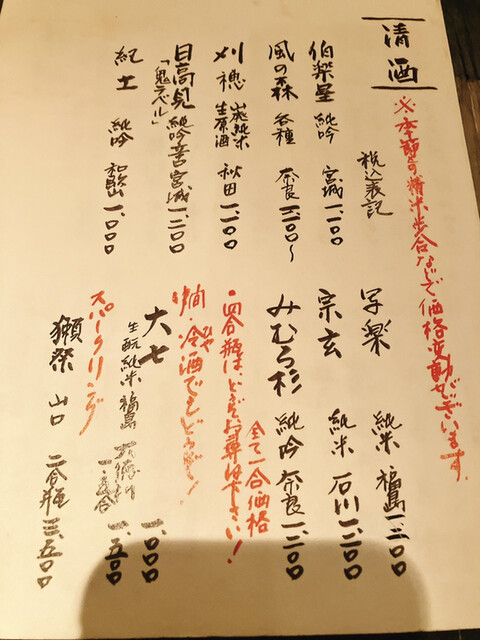 清酒
※季節や精米歩合などで価格変動がございます。
税込表記
伯楽星 純吟 宮城 一、一〇〇
風の森 各種 奈良 一、二〇〇〜
刈穂 山廃純米 生原酒 秋田 一、一〇〇
日高見 純吟 宮城 一、二〇〇
「鬼ラベル」
紀土 純吟 和歌山 一、〇〇〇
写楽 純米 福島 一、二〇〇
宗玄 純米 石川 一、二〇〇
みむろ杉 純吟 奈良 一、二〇〇
全て一合価格
・四合瓶は、どうぞお尋ね下さい!
燗・冷酒でもどうぞ!
ひや
大七 一、〇〇〇
生酛 純米 福島
一、五〇〇
スパークリング
獺祭 山口 二合瓶 三、五〇〇